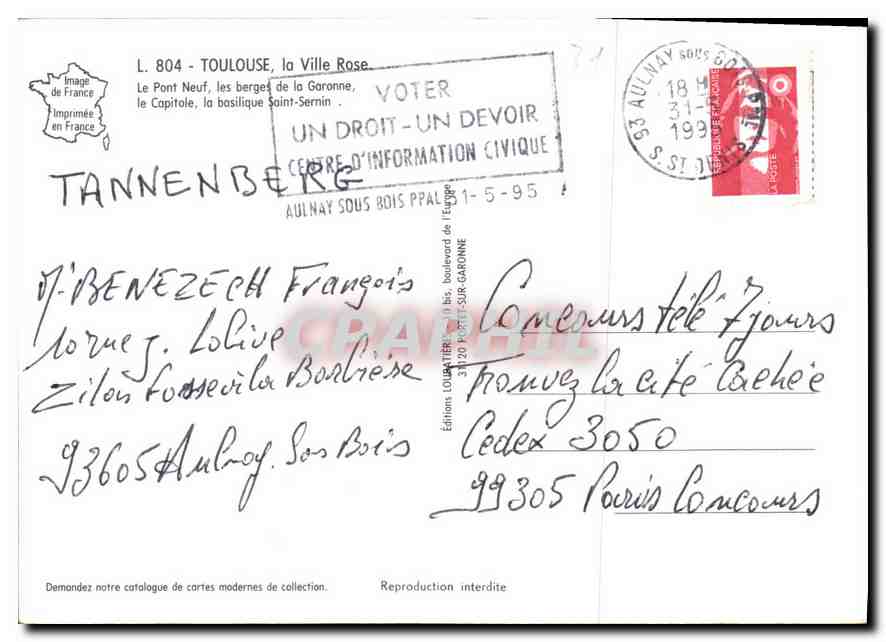 Image
de France
Imprimée
en France
L. 804 - TOULOUSE, la Ville Rose.
Le Pont Neuf, les berges de la Garonne,
le Capitole, la basilique Saint-Sernin .
VOTER
UN DROIT - UN DEVOIR
CENTRE D'INFORMATION CIVIQUE
AULNAY SOUS BOIS PPAL 31-5-95
93 AULNAY SOUS BOIS
18 H
31-5
199
S. ST DENIS
REPUBLIQUE FRANÇAISE
LA POSTE
TANNENBERG
Mr BENEZECH François
10 rue J. Lolive
93605 Aulnay Sos Bois
Editions LOUBATIERES, bis, boulevard de l'Europe
31120 PORTET-SUR-GARONNE
CPAPHIL
Concours télé 7 jours
Trouvez la cité Cachée
Cedex 3050
99305 Paris Concours
Demandez notre catalogue de cartes modernes de collection.
Reproduction interdite